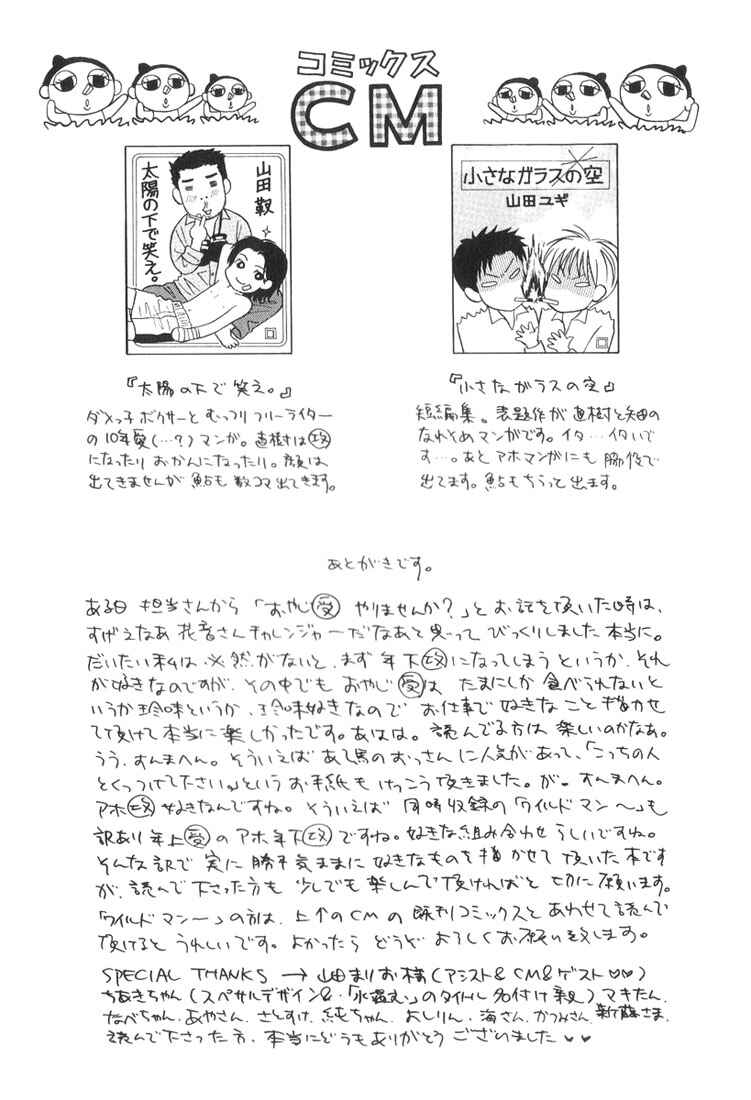 コミックス
CM
山田靫
太陽の下で笑え。
小さなガラスの空
山田ユギ
『太陽の下で笑え。』
ダメっ子ボクサーとむっつりフリーライター
の10年愛(…?)マンガ。直樹は攻
になったりおかんになったり。顔は
出てきませんが鮎も数コマ出てきます。
『小さなガラスの空』
短編集。表題作が直樹と矢田の
なれそめマンガです。イタ…イタいで
す…。あとアホマンガにも脇役で
出てます。鮎もちらっと出ます。
あとがきです。
ある日担当さんから「おやじ受やりませんか?」とお話を頂いた時は、
すげえなあ花音さんチャレンジャーだなあと思ってびっくりしました本当に。
だいたい私は必然がないと、まず年下攻になってしまうというか、それ
が好きなのですが、その中でもおやじ受は たまにしか食べられないと
いうか珍味というか、珍味好きなのでお仕事で好きなこと描かせ
て頂けて本当に楽しかったです。あはは。読んでる方は楽しいのかなあ。
うう、すんまへん。そういえばあて馬のおっさんに人気があって、「こっちの人
とくっつけて下さい。」というお手紙もけっこう頂きました。が…すんまへん。
アホ攻好きなんですね。そういえば同時収録の「ワイルドマン〜」も
訳あり年上受のアホ年下攻ですね。好きな組み合わせらしいですね。
そんな訳で実に勝手気ままに好きなものを描かせて頂いた本です
が、読んで下さった方も少しでも楽しんで頂ければと切に願います。
「ワイルドマン〜」の方は、上のCMの既刊コミックスとあわせて読んで
頂けるとうれしいです。よかったらどうぞよろしくお願い致します。
SPECIAL THANKS → 山田まりお様(アシスト&CM&ゲスト♡♡)
ちあきちゃん(スペサルデザイン&「水温む」のタイトル名付け親)マキたん、
なべちゃん、あやさん、さとすけ、純ちゃん、よしりん、海さん、かつみさん、新藤さま、
読んで下さった方、本当にどうもありがとうございました♥♥